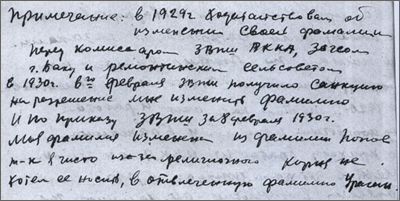 Примечание: в 1929г ходатайствовал об
изменении своей фамилии
перед комиссаром ЗВПШ РККА, Загсом
г. Баку и сельсоветом
в 1930г. в февраля ЗВПШ получило санкцию
на разрешение мне изменить фамилию
И по приказу ЗВПШ за 8 февраля 1930г.
Моя фамилия изменена из фамилии Попов
т-к я чисто из-за религиозного корня не
хотел ее носить, в отвлеченную фамилию